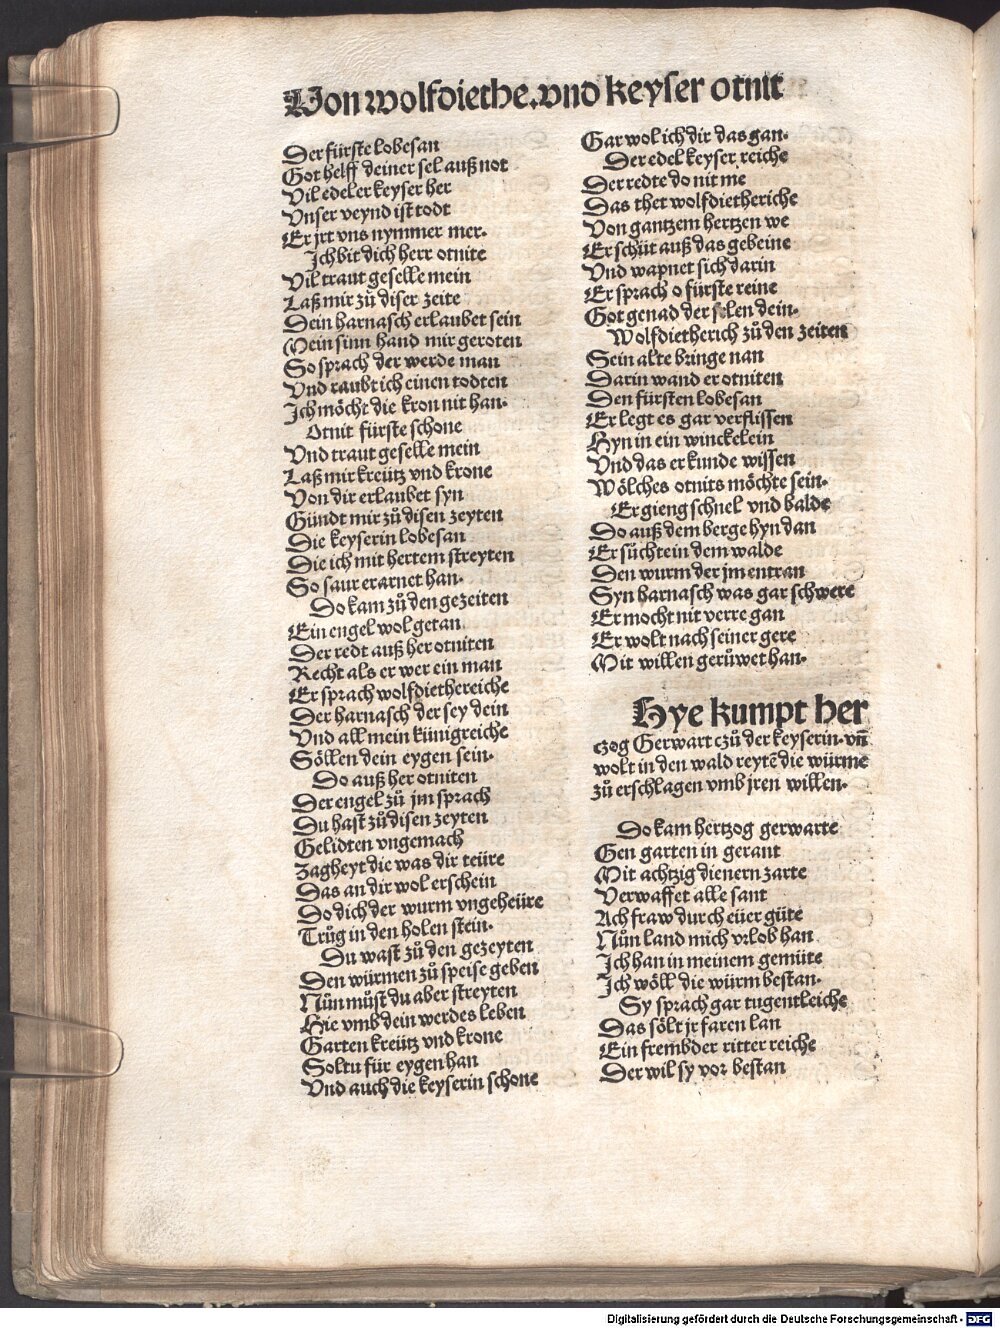 Von wolfdiethe. vnd keyser otnit
Der fürste lobesan
Got helff deiner sel auß not
Vil edeler keyser her
Vnser veynd ist todt
Er jrt vns nymmer mer.
Ich bit dich herr otnite
Vil traut geselle mein
Laß mir zů diser zeite
Dein harnasch erlaubet sein
Mein sinn hand mir geroten
So sprach der werde man
Vnd raubt ich einen todten
Ich möcht die kron nit han.
Otnit fürste schone
Vnd traut geselle mein
Laß mir kreütz vnd krone
Von dir erlaubet syn
Gündt mir zů disen zeyten
Die keyserin lobesan
Die ich mit hertem streyten
So saur erarnet han.
Do kam zů den gezeiten
Ein engel wol getan
Der redt auß her otniten
Recht als er wer ein man
Er sprach wolfdiethereiche
Der harnasch der sey dein
Vnd all mein künigreiche
Söllen dein eygen sein.
Do auß her otniten
Der engel zů jm sprach
Du hast zů disen zeyten
Gelidten vngemach
Zagheyt die was dir teüre
Das an dir wol erschein
Do dich der wurm vngeheüre
Trůg in den holen stein.
Du wast zů den gezeyten
Den würmen zů speise geben
Nůn můst du aber streyten
Hie vmb dein werdes leben
Garten kreütz vnd krone
Soltu für eygen han
Vnd auch die keyserin schone
Gar wol ich dir das gan.
Der edel keyser reiche
Der redte do nit me
Das thet wolfdietheriche
Von gantzem hertzen we
Er schüt auß das gebeine
Vnd wapnet sich darin
Er sprach o fürste reine
Got genad der selen dein.
Wolfdietherich zů den zeiten
Sein alte bringe nan
Darin wand er otniten
Den fürsten lobesan
Er legt es gar verflissen
Hyn in ein winckelein
Vnd das er kunde wissen
Wölches otnits möchte sein.
Er gieng schnel vnd balde
Do auß dem berge hyn dan
Er sůchte in dem walde
Den wurm der jm entran
Syn harnasch was gar schwere
Er mocht nit verre gan
Er wolt nach seiner gere
Mit willen gerůwet han.
Hye kumpt her
czog Gerwart czů der keyserin. vñ
wolt in den wald reytē die würme
zů erschlagen vmb jren willen.
Do kam hertzog gerwarte
Gen garten in gerant
Mit achtzig dienern zarte
Verwaffet alle sant
Ach fraw durch eüer güte
Nůn land mich vrlob han
Ich han in meinem gemüte
Ich wöll die würm bestan.
Sy sprach gar tugentleiche
Das sölt jr faren lan
Ein frembder ritter reiche
Der wil sy vor bestan
Digitalisierung gefördert durch die Deutsche Forschungsgemeinschaft - DFG